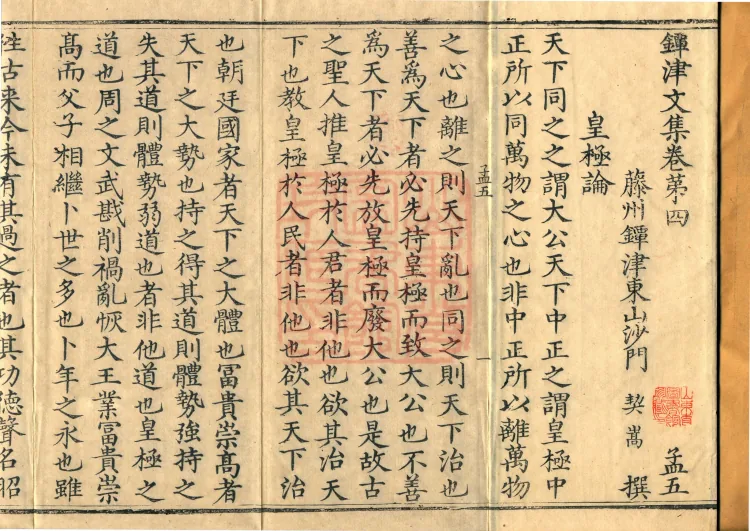 鐔津文集卷第四 孟五
藤州鐔津東山沙門 契嵩 撰
皇極論
天下同之之謂大公天下中正之謂皇極中
正所以同萬物之心也非中正所以離萬物
之心也離之則天下亂也同之則天下治也
善爲天下者必先持皇極而致大公也不善
爲天下者必先放皇極而廢大公也是故古
之聖人推皇極於人君者非他也欲其治天
下也教皇極於人民者非他也欲其天下治
也朝廷國家者天下之大體也冨貴崇髙者
天下之大勢也持之得其道則體勢強持之
失其道則體勢弱道也者非他道也皇極之
道也周之文武戡削禍亂恢大王業冨貴崇
髙而父子相繼卜世之多也卜年之永也雖
往古来今未有其過之者也其功德聲名昭
孟五
一